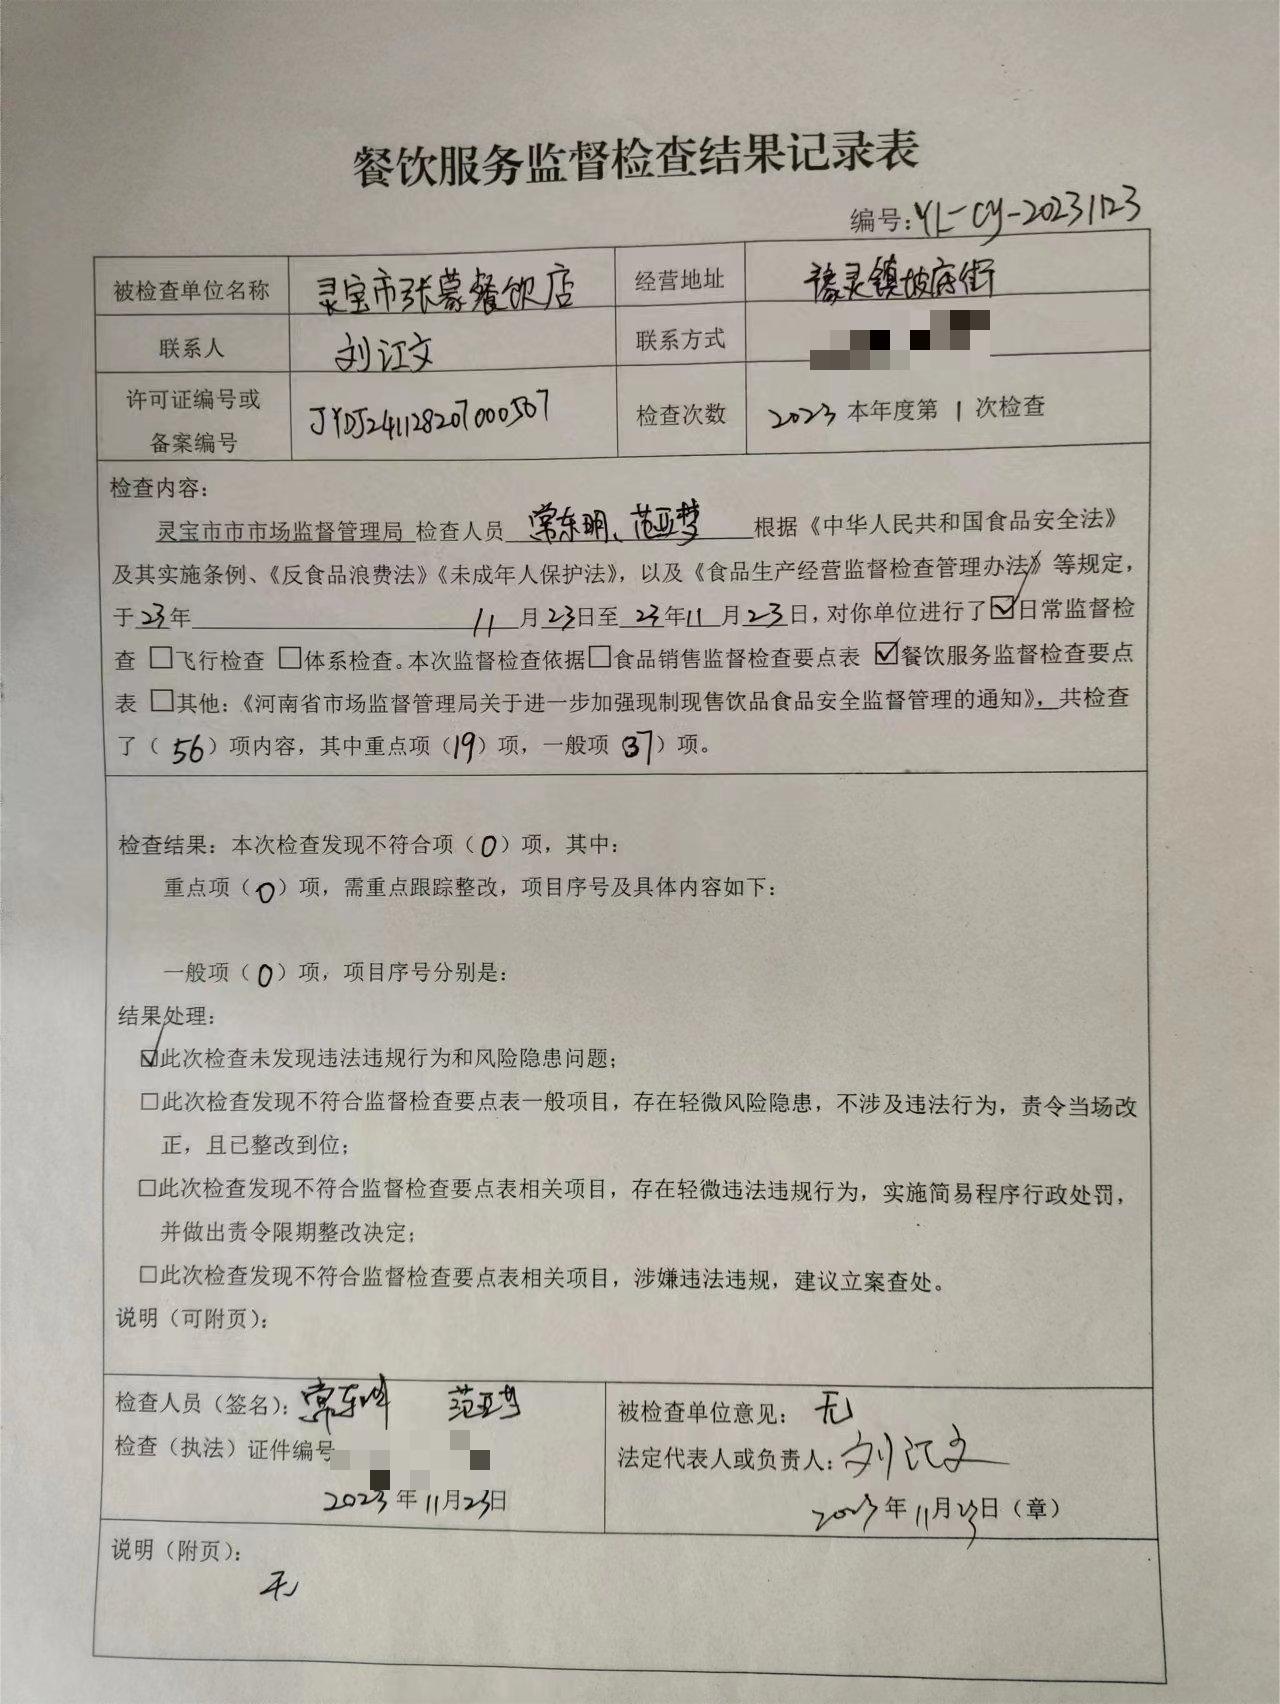 餐饮服务监督检查结果记录表
编号：YL-CY-20231123
被检查单位名称 灵宝市张蒙餐饮店 经营地址 豫灵镇坡底街
联系人 刘江文 联系方式
许可证编号或
备案编号 JYDJ241128207000567 检查次数 2023 本年度第 1 次检查
检查内容：
灵宝市市市场监督管理局 检查人员 常东明、范亚梦 根据《中华人民共和国食品安全法》
及其实施条例、《反食品浪费法》《未成年人保护法》，以及《食品生产经营监督检查管理办法》等规定，
于23年 11月23日至23年11月23日，对你单位进行了☑日常监督检
查 □飞行检查 □体系检查。本次监督检查依据□食品销售监督检查要点表 ☑餐饮服务监督检查要点
表 □其他：《河南省市场监督管理局关于进一步加强现制现售饮品食品安全监督管理的通知》，共检查
了（56）项内容，其中重点项（19）项，一般项（37）项。
检查结果：本次检查发现不符合项（0）项，其中：
重点项（0）项，需重点跟踪整改，项目序号及具体内容如下：
一般项（0）项，项目序号分别是：
结果处理：
☑此次检查未发现违法违规行为和风险隐患问题；
□此次检查发现不符合监督检查要点表一般项目，存在轻微风险隐患，不涉及违法行为，责令当场改
正，且已整改到位；
□此次检查发现不符合监督检查要点表相关项目，存在轻微违法违规行为，实施简易程序行政处罚，
并做出责令限期整改决定；
□此次检查发现不符合监督检查要点表相关项目，涉嫌违法违规，建议立案查处。
说明（可附页）：
检查人员（签名）：常东明 范亚梦
检查（执法）证件编号
2023年11月23日
被检查单位意见：无
法定代表人或负责人：刘江文
2023年11月23日（章）
说明（附页）：
无